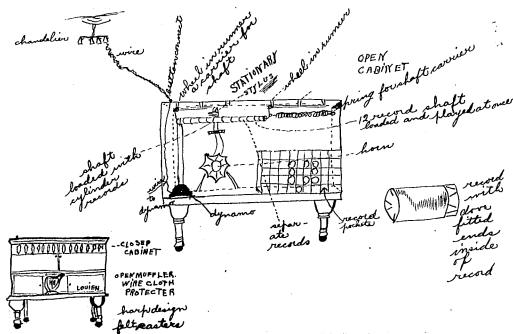 chandelier
wire
button wire
wheel in runner
a carrier for
shaft
STATIONARY
STYLUS
wheel in runner
OPEN
CABINET
spring for shaft carrier
12 record shaft
loaded and played at once
horn
shaft
loaded with
cylinder
records
wire
to
dynamo
dynamo
separ-
ate
records
record
pockets
record
with
dove
fitted
ends
inside
of
record
CLOSED
CABINET
LOUIEN
OPEN MOFFLER.
WIRE CLOTH
PROTECTER
harp design
felt casters